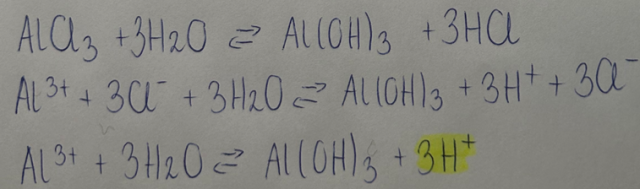 AlCl3 + 3H2O ⇄ Al(OH)3 + 3HCl
Al3+ + 3Cl- + 3H2O ⇄ Al(OH)3 + 3H+ + 3Cl-
Al3+ + 3H2O ⇄ Al(OH)3 + 3H+